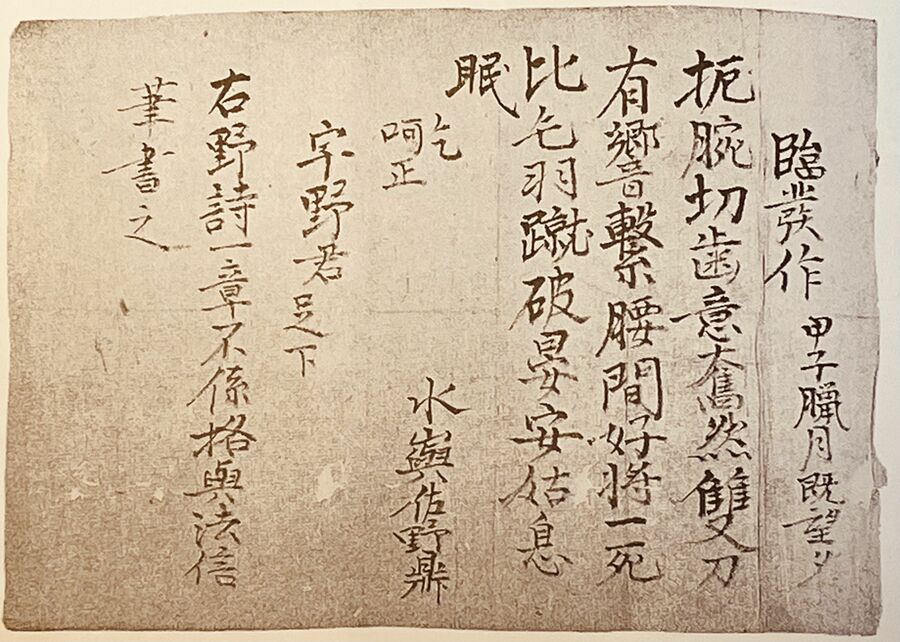 臨發作 甲子臘月既望夕
扼腕切歯意奮然雙刀
有響繋腰間好将一死
比毛羽蹴破晏安姑息
眠
乞
呵正
水嶼佐野鼎
宇野君足下
右野詩一章不係格與法信
筆書之